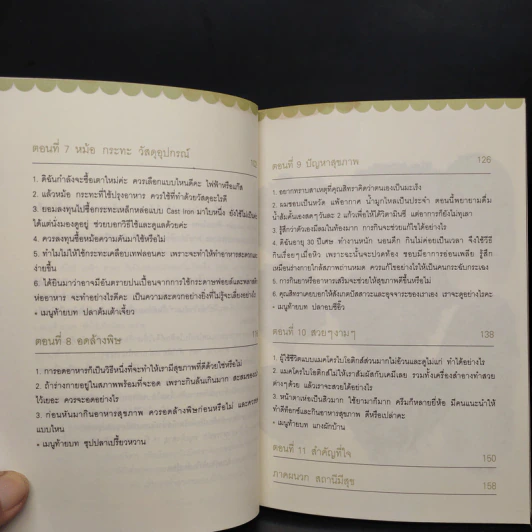 ตอนที่ 7 หม้อ กระทะ วัสดุอุปกรณ์
1. ดิฉันกำลังจะซื้อเตาใหม่ค่ะ ควรเลือกแบบไหนดีคะ ไฟฟ้าหรือแก๊ส
2. แล้วหม้อ กระทะที่ใช้ปรุงอาหาร ควรใช้ที่ทำด้วยวัสดุอะไรดี
3. ยอมลงทุนไปซื้อกระทะเหล็กหล่อแบบ Cast Iron มาใบหนึ่ง ยังใช้ไม่เป็น
ได้แต่นั่งมองดูอยู่ ช่วยบอกวิธีใช้และดูแลด้วยค่ะ
4. ควรลงทุนซื้อหม้อความดันมาใช้หรือไม่
5. ทำไมไม่ให้ใช้กระทะเคลือบเทฟลอนคะ เพราะจะทำให้ทำอาหารสะดวก
ง่ายขึ้น
6. ได้ยินมาว่าอาจมีอันตรายปนเปื้อนจากการใช้กระดาษฟอยล์และพลาสติก
ห่ออาหาร จะทำอย่างไรดีคะ เป็นความสะดวกอย่างยิ่งที่ไม่รู้จะเลี่ยงอย่างไร
• เมนูท้ายบท ปลาต้มเต้าเจี้ยว
ตอนที่ 8 อดล้างพิษ
1. การอดอาหารก็เป็นวิธีหนึ่งที่จะทำให้เรามีสุขภาพที่ดีด้วยใช่หรือไม่
2. ถ้าร่างกายอยู่ในสภาพพร้อมที่จะอด เพราะกินล้นเกินมาก สะสมของเสีย
ไว้เยอะ ควรจะอดอย่างไร
3. ก่อนหันมากินอาหารสุขภาพ ควรอดล้างพิษก่อนหรือไม่ และควร
แบบไหน
• เมนูท้ายบท ซุปปลาเปรี้ยวหวาน
ตอนที่ 9 ปัญหาสุขภาพ 126
1. อยากทราบสาเหตุที่คุณสิทราคิดว่าตนเองเป็นมะเร็ง
2. ผมชอบเป็นหวัด แพ้อากาศ น้ำมูกไหลเป็นประจำ ตอนนี้พยายามดื่ม
น้ำส้มคั้นเองสดๆวันละ 2 แก้วเพื่อให้ได้วิตามินซี แต่อาการก็ยังไม่ทุเลา
3. รู้สึกว่าตัวเองมีลมในท้องมาก การกินจะช่วยแก้ไขได้อย่างไร
4. ดิฉันอายุ 30 ปีเศษ ทำงานหนัก นอนดึก กินไม่ค่อยเป็นเวลา จึงใช้วิธี
กินเรื่อยๆเมื่อหิว เพราะฉะนั้นจะปวดท้อง ชอบมีอาการอ่อนเพลีย รู้สึก
เหมือนร่างกายใกล้สภาพถ่านหมด ควรแก้ไขอย่างไรให้เป็นคนกระฉับกระเฉง
5. การกินยาหรืออาหารเสริมจะช่วยให้สุขภาพดีขึ้นหรือไม่
6. คุณสิทราเคยบอกให้สังเกตปัสสาวะและอุจจาระของเราเอง เราจะดูอย่างไรคะ
• เมนูท้ายบท ปลาอบซีอิ๊ว
ตอนที่ 10 สวยๆงามๆ 138
1. ผู้ใช้ชีวิตแบบแมคโครไบโอติกส์ส่วนมากไม่อ้วนและดูไม่แก่ ทำได้อย่างไร
2. แมคโครไบโอติกส์ไม่ให้เราสัมผัสกับเคมีเลย รวมทั้งเครื่องสำอางทำสวย
ต่างๆด้วย แล้วเราจะสวยได้อย่างไร
3. หน้าตาเห่อเป็นสิวมาก ใช้ยามาก็มาก ครีมก็หลายยี่ห้อ มีคนแนะนำให้
ทำดีท็อกซ์และกินอาหารสุขภาพ ดีหรือเปล่าคะ
• เมนูท้ายบท แกงผักบ้าน
ตอนที่ 11 สำคัญที่ใจ 150
ภาคผนวก สถานีมีสุข 158